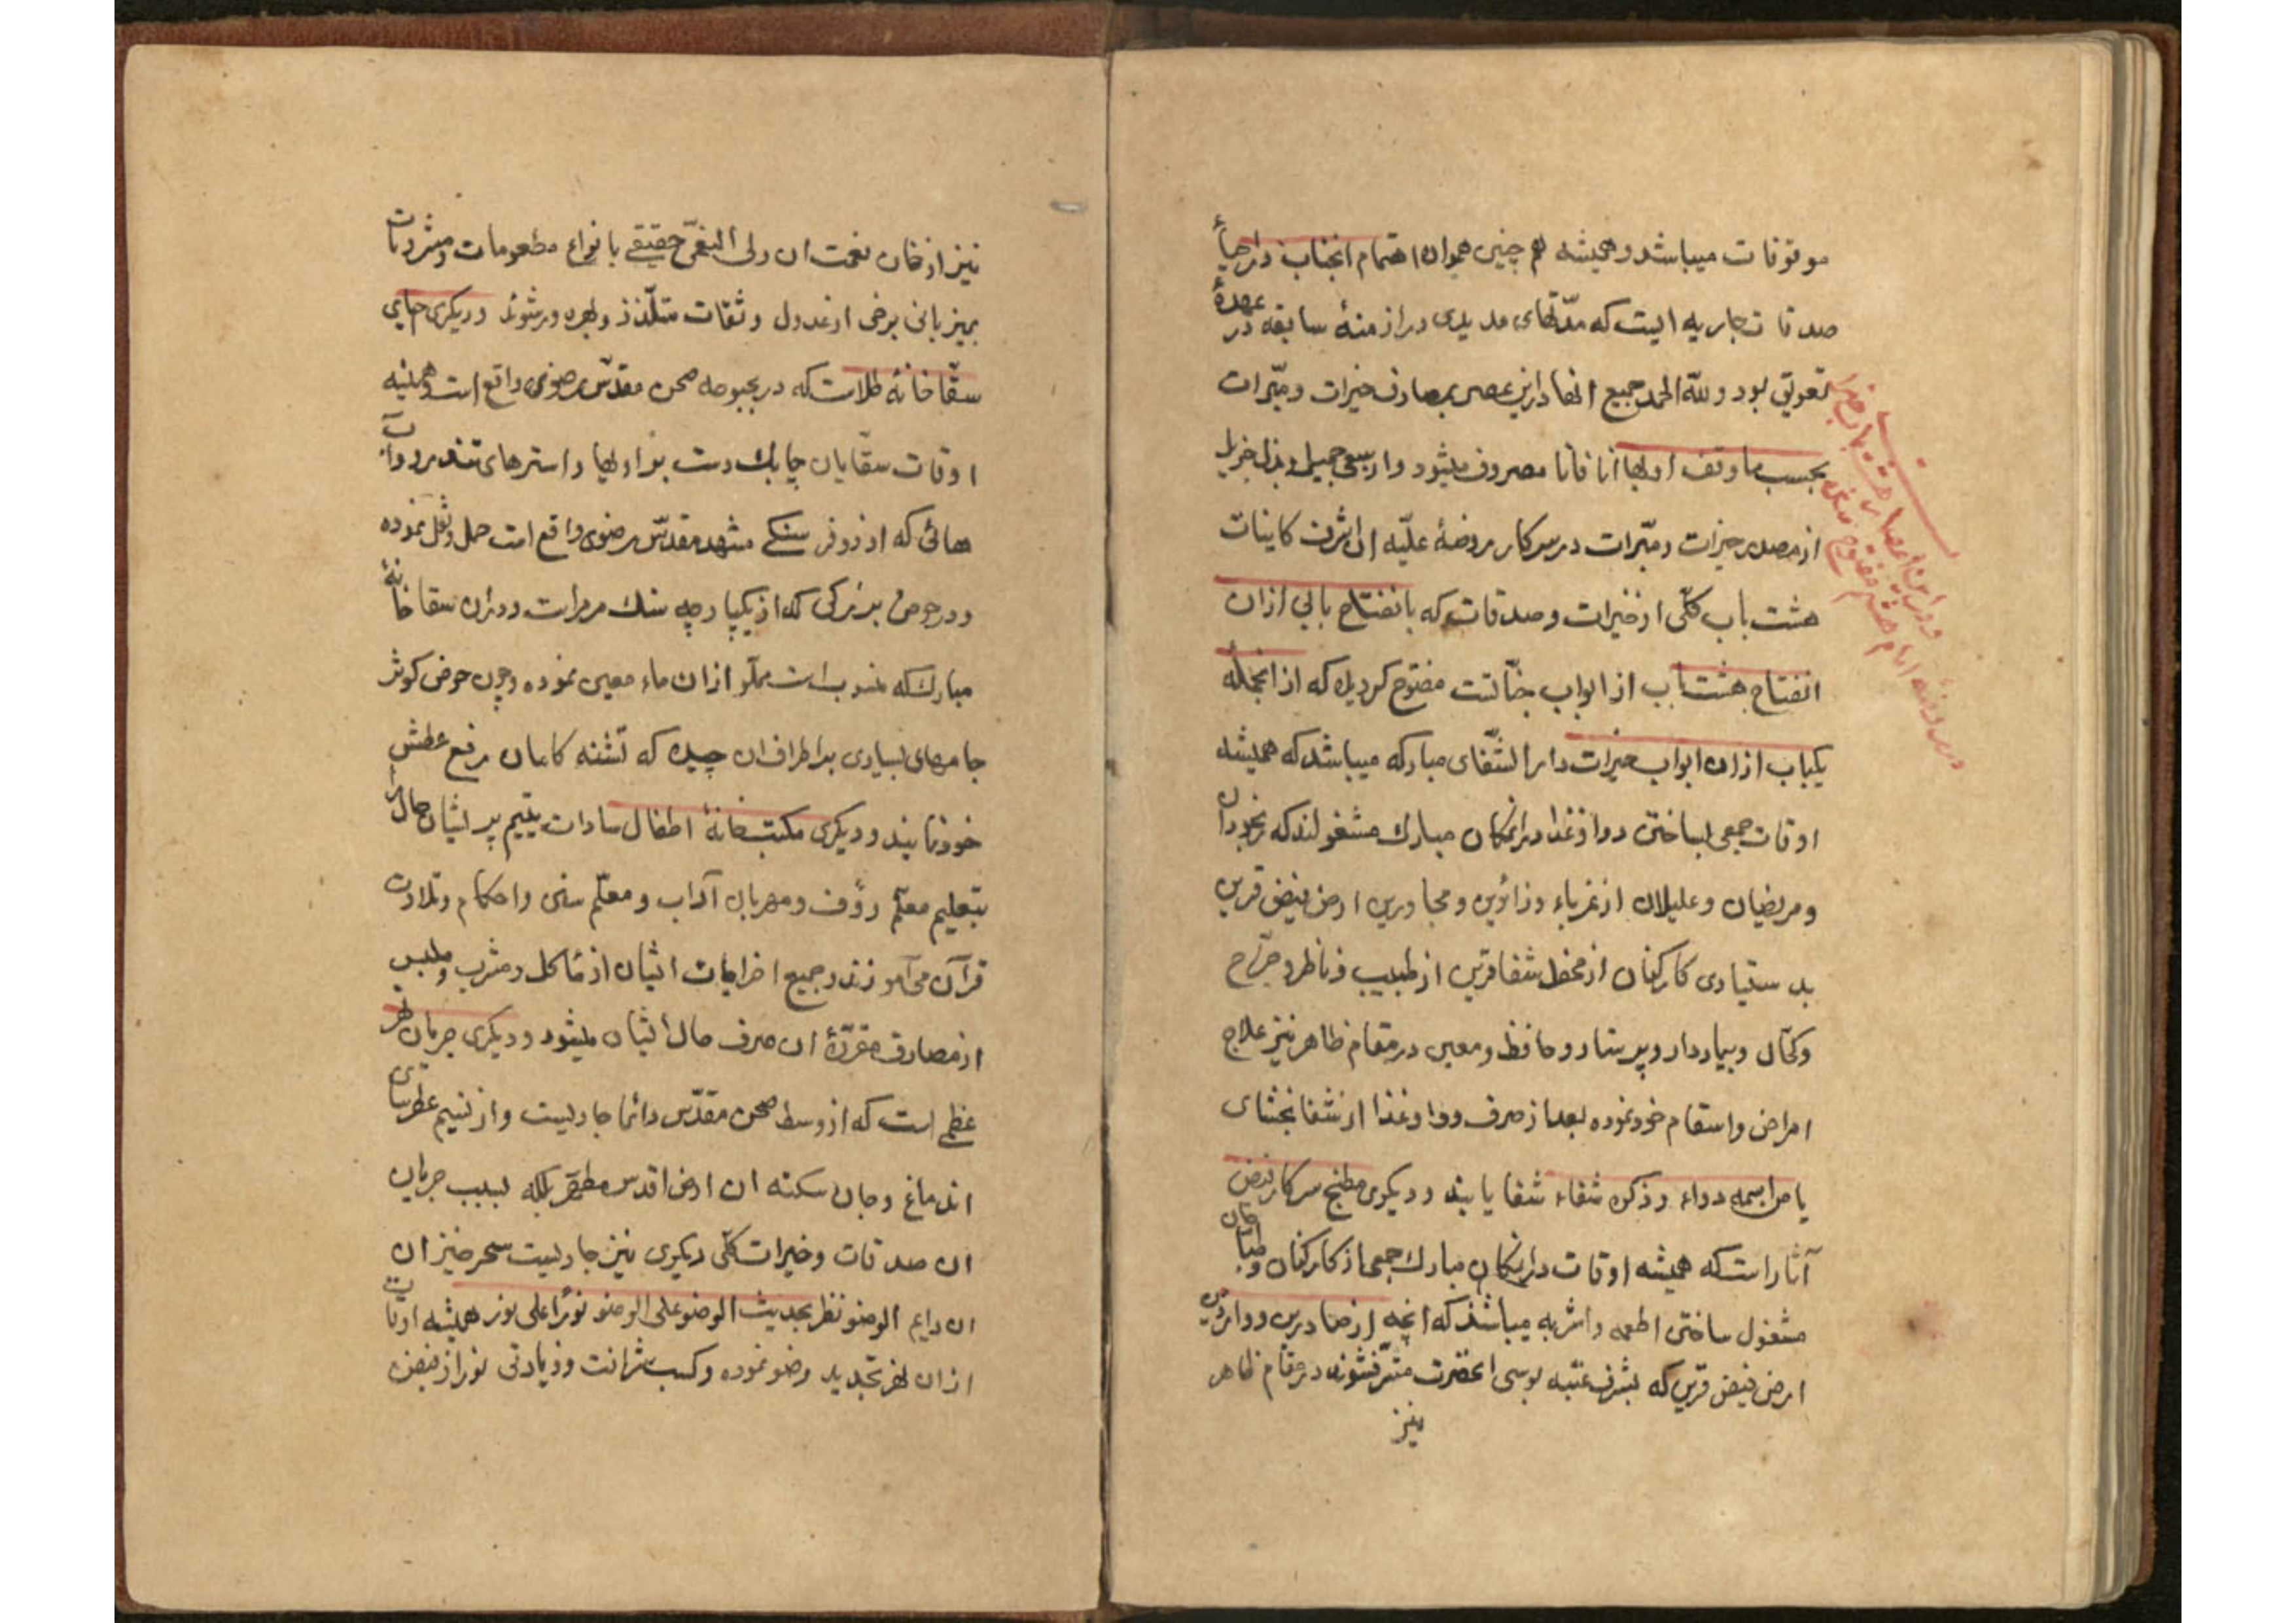 موقوفات میباشد و همیشه هم چنین همواره اهتمام انجناب در احیاء
صدقات جاریه الیست که مدّتهای مدیدی در ازمنهٔ سابقه در عهدهٔ
تعویق بود و للّه الحمد جمیع انها در این عصر بمصارف خیرات و مبّرات
بحسب ما وقف اولها انا فانا مصروف میشود و از سعی جمیل و بذل جزیل
از مصدر خیرات و مبّرات در سرکار روضهٔ علّیه ان اشرف کاینات
هشت باب کلّی از خیرات و صدقات که بانفتاح بابی از ان
انفتاح هشت باب از ابواب جنّاتست مفتوح کردیده که از انجمله
یکباب از ان ابواب خیرات دار الشّفای مبارکه میباشد که همیشه
اوقات جمعی بساختن دوا و غذا در انمکان مبارک مشغولند که رنجوران
و مریضان و علیلان از غرباء و زائرین و مجاورین ارض فیض قرین
بدستیاری کارکنان از محفل شفا قرین از طبیب و ناظر و جرّاح
و کحّال و بیماردار و پرستار و حافظ و معین در مقام ظاهر نیز علاج
امراض و اسقام خود نموده بعد از صرف دوا و غذا از شفا بخشای
یا من اسمه دواء و ذکره شفاء شفا یابند و دیکری مطبخ سرکار فیض
آثار است که همیشه اوقات در انمکان مبارک جمعی از کارکنان و طباخان
مشغول ساختن اطعمه و اشربه میباشند که انچه از صادرین و واردین
ارض فیض قرین که بشرف عتبه بوسی انحضرت مشرّف شوند در مقام ظاهر
نیز
و در این اعصار هشت باب خیرات
در روضه امام هشتم مفتوح شده
نیز از خان نعمت ان ولی النعّم حقیقے بانواع مطعومات و مشروبات
بمیزبانی برخی از عدول و ثقات متلّذذ و بهره ور شوند و دیکری جای
سقّاخانهٔ طلاست که در بحبوحه صحن مقدّس رضوی واقع است و همیشه
اوقات سقّایان چابک دست بر اولها و استرهای تندرو و آب
هائی که از دو فرسنکے مشهد مقدّس رضوی واقع است حمل و نقل نموده
و در حوض بزرکی که از یکپارچه سنک مرمر است و در ان سقاخانهٔ
مبارکه منسوبست مملّو از ان ماء معین نموده و چون حوض کوثر
جامهای بسیاری بر اطراف ان چیده که تشنه کامان رفع عطش
خود نمایند و دیکری مکتبخانهٔ اطفال سادات یتیم پریشان حال
بتعلیم معلّم رؤف و مهربان آداب و معلّم سنی و احکام و تلاوت
قرآن می آموزند و جمیع اخراجات ایشان از مأکل و مشرب و ملبس
از مصارف مقرّرهٔ ان صرف حال ایشان میشود و دیکری جریان نهر
عظمے است که از وسط صحن مقدّس دائما جاریست و از نسیم عطرسای
ان دماغ و جان سکنه ان ارض اقدس معطّر بلکه بسبب جریان
ان صدقات و خیرات کلّی دیکری نیز جاریست سحر خیزان
ان دایم الوضو نظر بحدیث الوضو علی الوضو نورا علی نور همیشه اوقات
از ان نهر تجدید وضو نموده و کسب شرافت و زیادتی نور از فیض